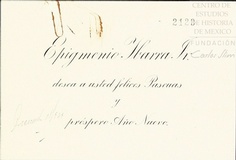 CENTRO DE
ESTUDIOS
DE HISTORIA
DE MEXICO
FUNDACIÓN
Carlos Slim
Epigmenio Ibarra Jr.
desea a usted felices Pascuas
y
próspero Año Nuevo.